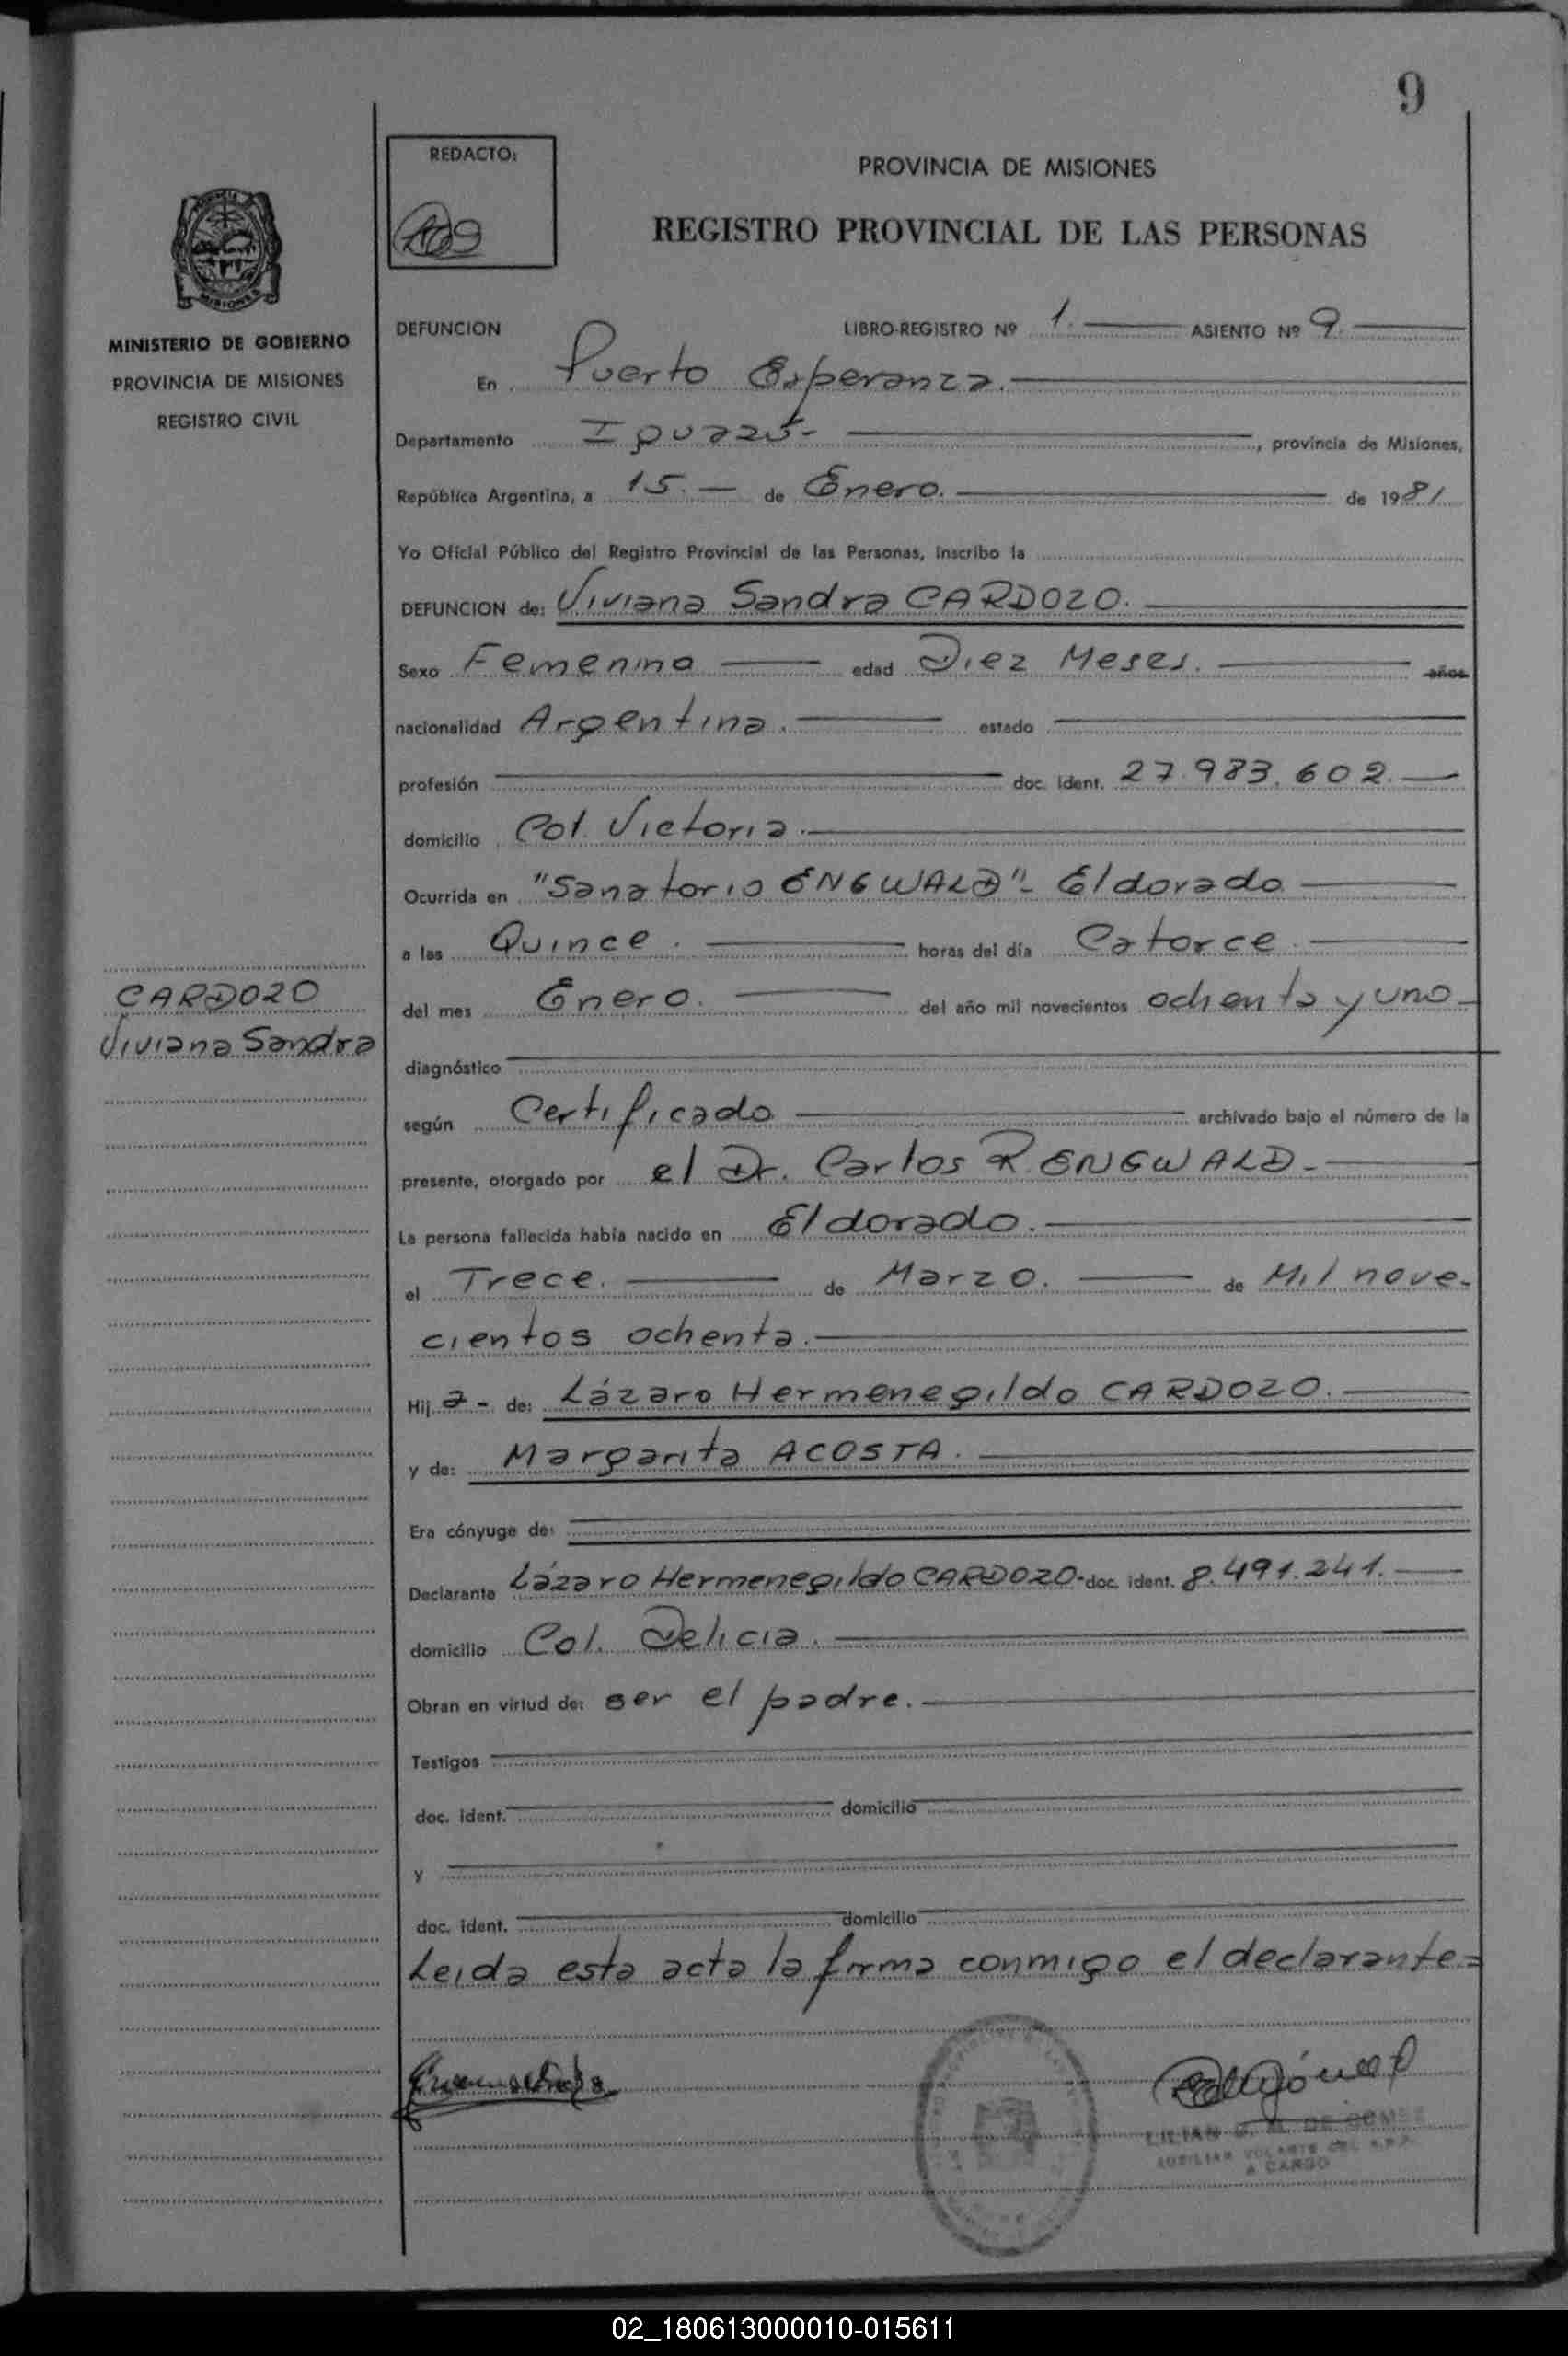 9
REDACTO:
PROVINCIA DE MISIONES
REGISTRO PROVINCIAL DE LAS PERSONAS
MINISTERIO DE GOBIERNO
PROVINCIA DE MISIONES
REGISTRO CIVIL
DEFUNCION LIBRO-REGISTRO Nº 1. ASIENTO Nº 9.
En Puerto Esperanza.
Departamento Iguazú- , provincia de Misiones,
República Argentina, a 15.- de Enero. de 1981
Yo Oficial Público del Registro Provincial de las Personas, inscribo la
DEFUNCION de: Viviana Sandra CARDOZO.
Sexo Femenino edad Diez Meses. años
nacionalidad Argentina. estado
profesión doc. ident. 27.983.602.
domicilio Col. Victoria.
Ocurrida en "Sanatorio ENGWALD"- Eldorado
a las Quince. horas del día Catorce.
CARDOZO
Viviana Sandra
del mes Enero. del año mil novecientos ochenta y uno
diagnóstico
según Certificado archivado bajo el número de la
presente, otorgado por el Dr. Carlos R. ENGWALD-
La persona fallecida había nacido en Eldorado.
el Trece. de Marzo. de Mil nove-
cientos ochenta.
Hij a - de: Lázaro Hermenegildo CARDOZO.
y de: Margarita ACOSTA.
Era cónyuge de:
Declarante Lázaro Hermenegildo CARDOZO- doc. ident. 8.491.241.
domicilio Col. Delicia.
Obran en virtud de: ser el padre.
Testigos
doc. ident. domicilio
y
doc. ident. domicilio
Leida esta acta la firma conmigo el declarante=
LILIAN DE GOMEZ
AUXILIAR VOLANTE DEL R.P.P.
A CARGO
02_180613000010-015611